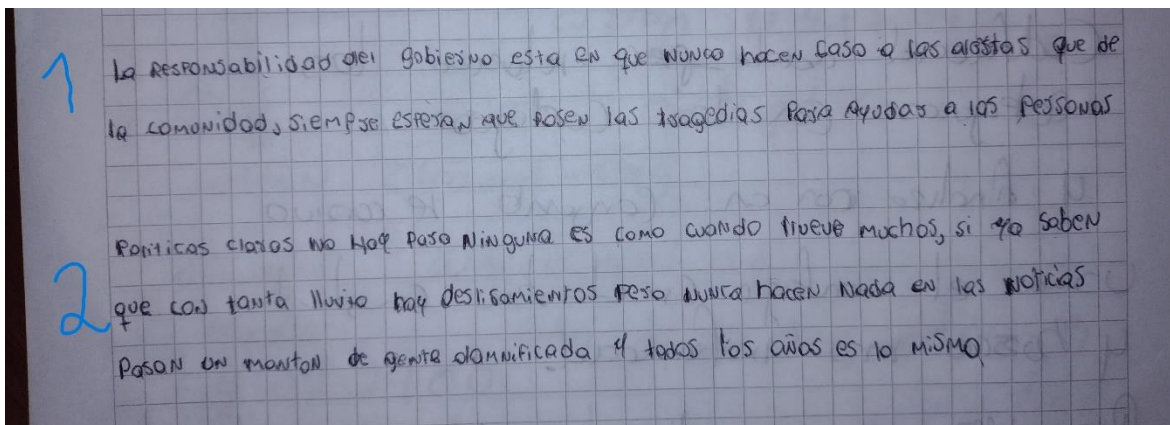 1
la RESPONSabilidad del gobierno esta en que nunca hacen caso a las alestas que de
la comonidad, siempre esperan que pasen las tragedias para ayudar a las personas
2
Politicas claras no hay paso ninguna es como cuando llueve muchos, si ya saben
que con tanta lluvia hay deslisamientos pero nunca hacen nada en las noticias
pasan un monton de gente damnificada y todos los años es lo mismo